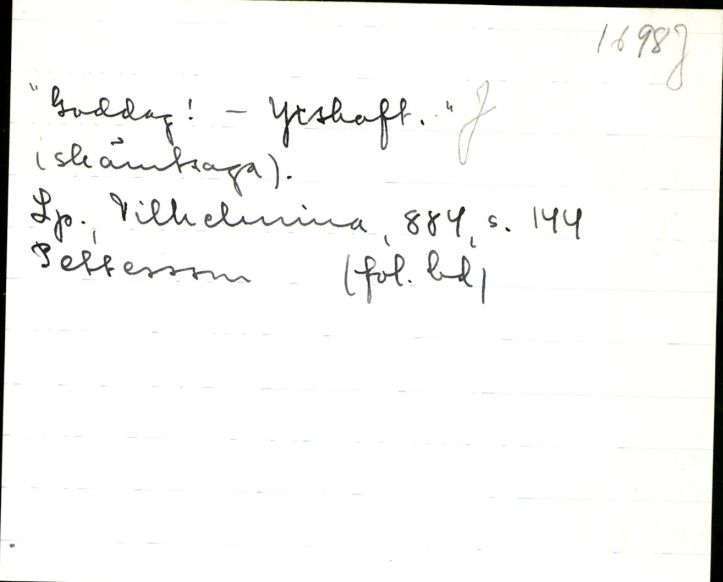 1698J
"Goddag! - Yxskaft." J
(skämtsaga).
Lp., Vilhelmina, 884, s. 144
Pettersson (fol. bd)